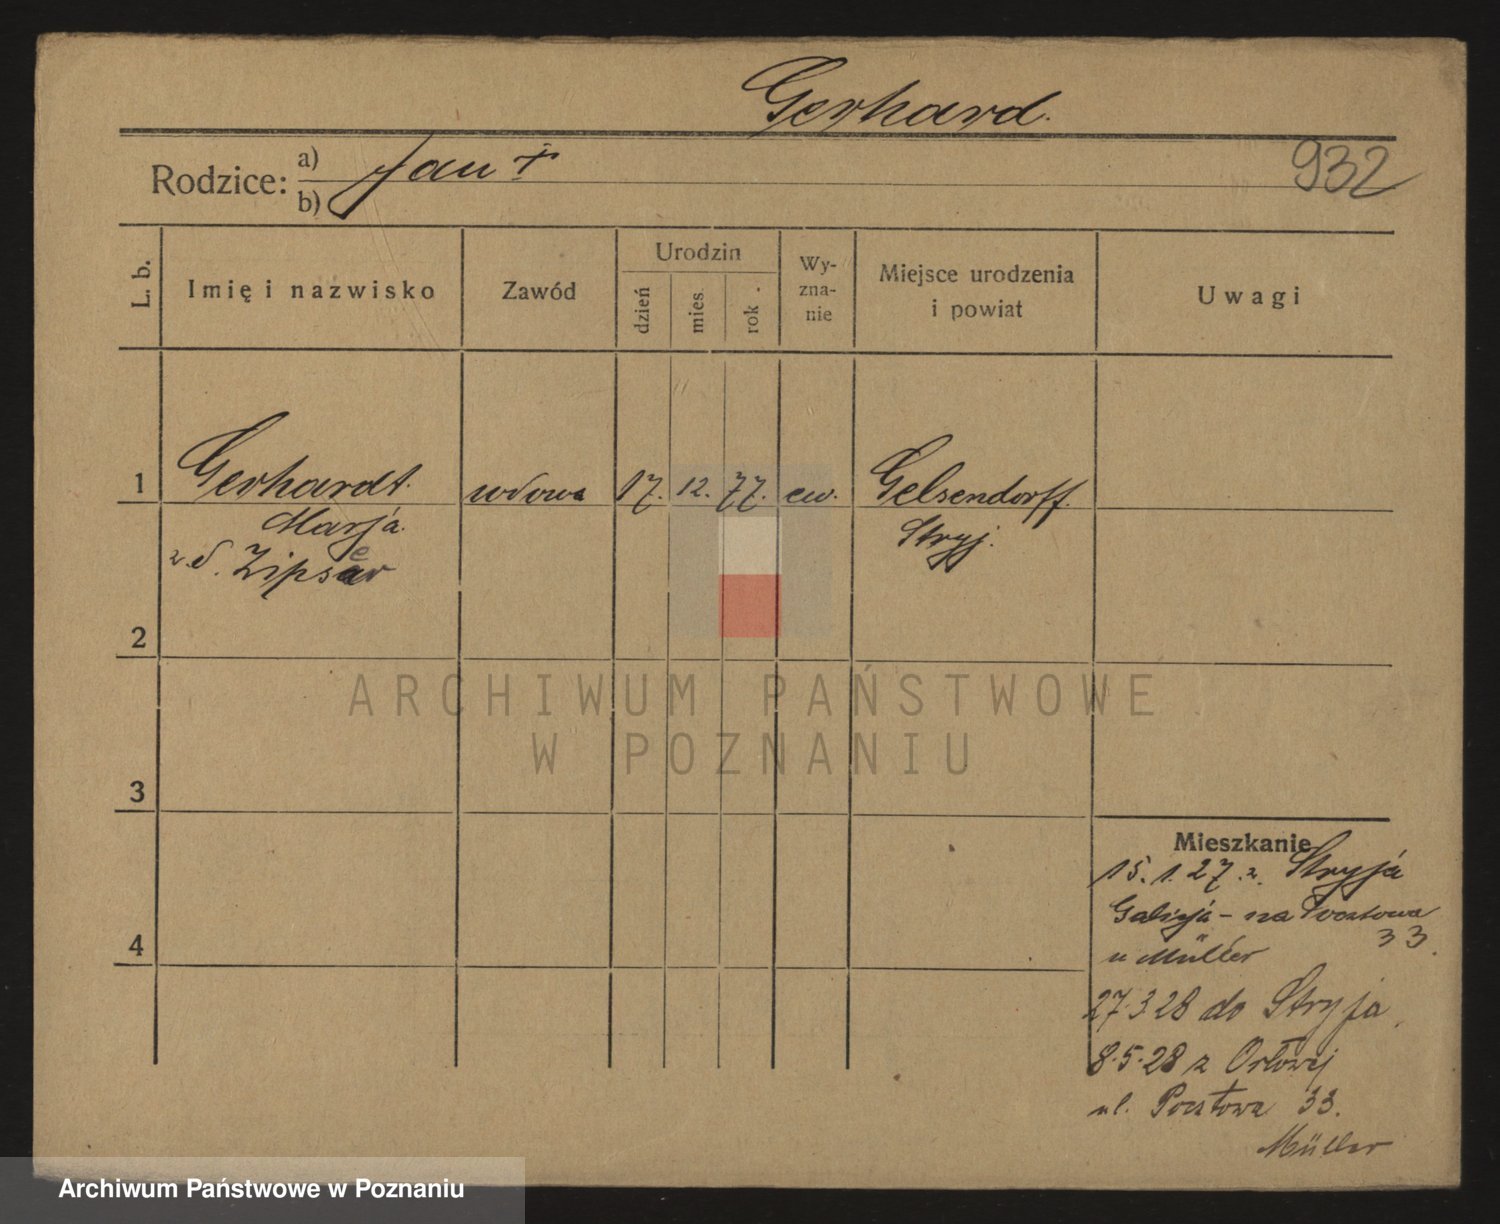 Gerhard.
932
Rodzice: a) Jan +
b)
L. b. Imię i nazwisko Zawód Urodzin dzień mies. rok Wy-zna-nie Miejsce urodzenia i powiat Uwagi
1 Gerhardt. wdowa 17. 12. 77. ew. Gelsendorff.
Marja. Stryj.
z. d. Zipser
2
ARCHIWUM PAŃSTWOWE
W POZNANIU
3
Mieszkanie
15. 1. 27. z. Stryja
Galicja - na Pocztowa
33.
u Müller
4
27.3.28 do Stryja
8.5.28 z Orłowej
ul. Pocztowa 33.
Müller
Archiwum Państwowe w Poznaniu